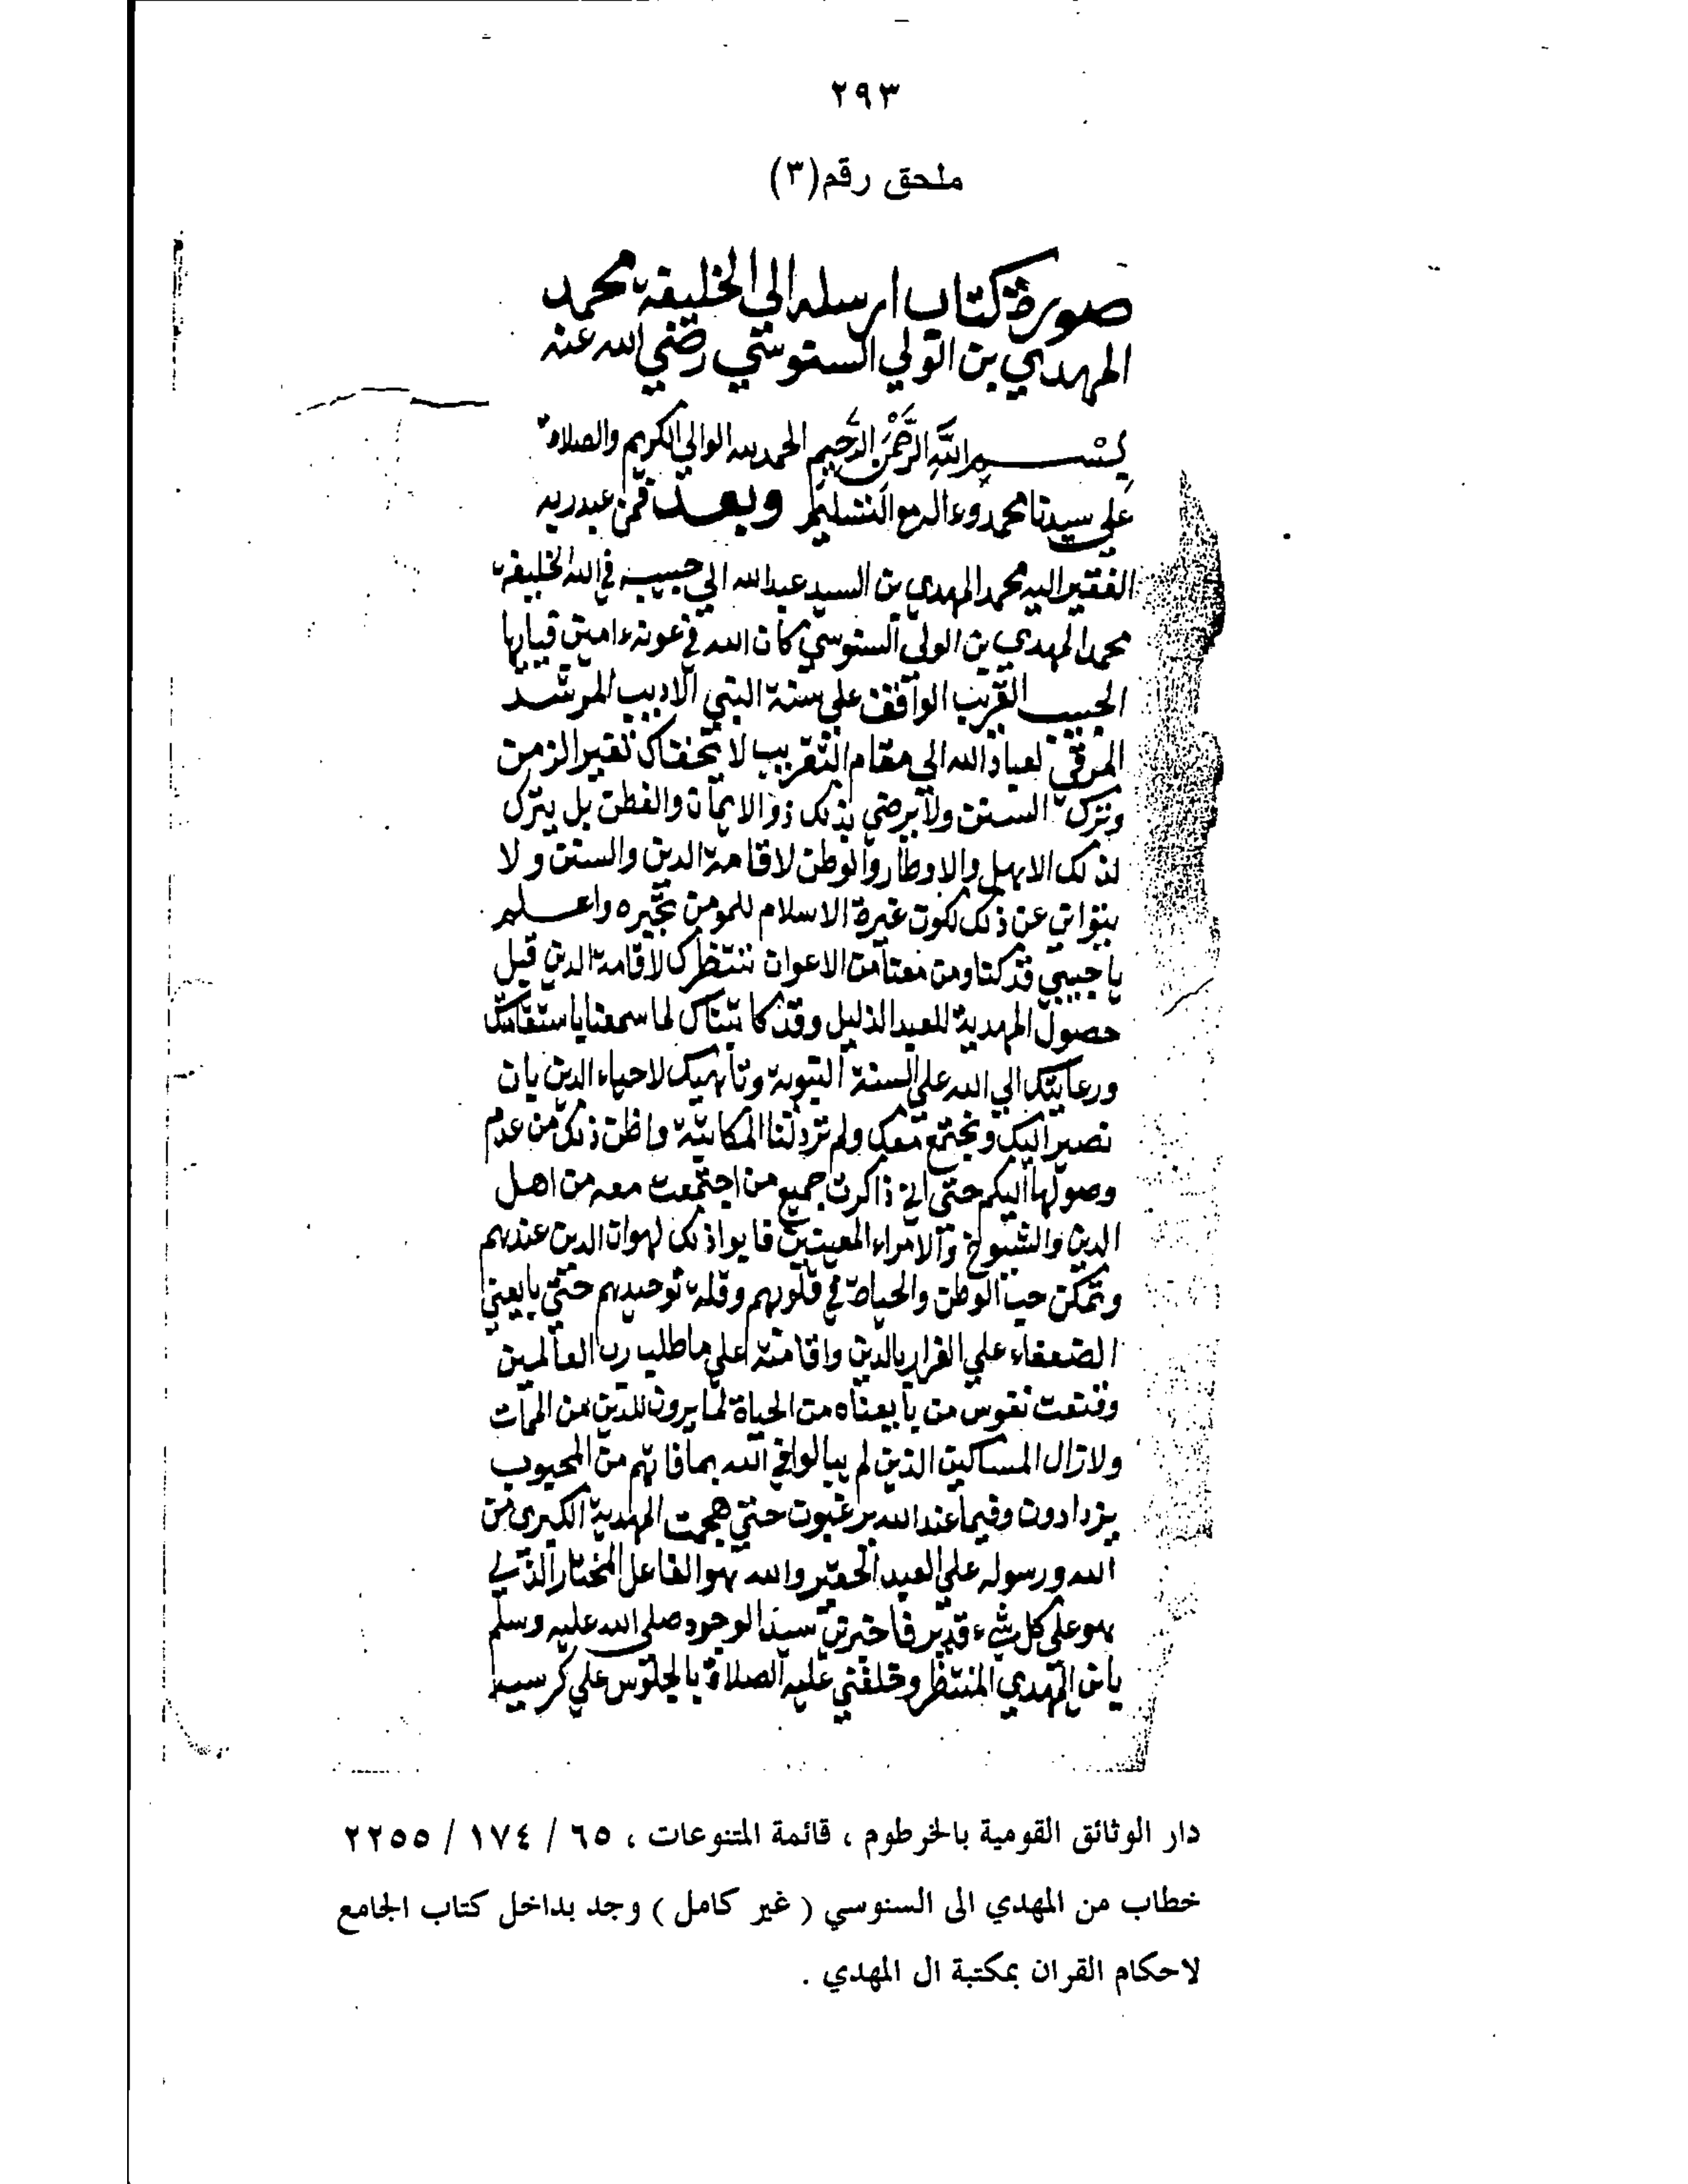 ٢٩٣
ملحق رقم (٣)
صورة كتاب ارسله الي الخليفة محمد
المهدي بن الولي السنوسي رضي الله عنه
بسم الله الرحمن الرحيم الحمد لله الوالي الكريم والصلاة
علي سيدنا محمد وءاله مع التسليم وبعد فمن عبد ربه
الفقير اليه محمد المهدي بن السيد عبد الله الي حبيبه في الله الخليفة
محمد المهدي بن الولي السنوسي كان الله في عونه ءامين فيايها
الحبيب القريب الواقف علي سنة النبي الاديب المرشد
المرقي لعباد الله الي مقام التقريب لا يخفاك تغير الزمن
وترك السنن ولا يرضي بذلك ذو الايمان والفطن بل يترك
لذلك الاهل والاوطار والوطن لاقامة الدين والسنن ولا
يتواني عن ذلك لكون غيرة الاسلام للمومن تجبره واعلم
يا حبيبي قد كنا ومن معنا من الاعوان ننتظرك لاقامة الدين قبل
حصول المهدية للعبد الذليل وقد كاتبناك لما سمعنا باستقامتك
ورعايتك الي الله علي السنة النبوية وتأهبك لاحياء الدين بان
نصير اليك ونجتمع معك ولم ترد لنا المكاتبة واظن ذلك من عدم
وصولها اليكم حتي اني ذاكرت جميع من اجتمعت معه من اهل
الدين والشيوخ والامراء المعينين فابوا ذلك لهوان الدين عندهم
وتمكن حب الوطن والحياة في قلوبهم وقلة توحيدهم حتي بايعني
الضعفاء علي الفرار بالدين واقامته علي ما طلب رب العالمين
وقنعت نفوس من بايعناه من الحياة لما يرون للدين من الممات
ولازال المساكين الذين لم يبالوا في الله بما فاتهم من المحبوب
يزدادون وفيما عند الله يرغبون حتي هجمت المهدية الكبرى من
الله ورسوله علي العبد الحقير والله هو الفاعل المختار الذي
هو علي كل شيء قدير فاخبرني سيد الوجود صلى الله عليه وسلم
باني المهدي المنتظر وخلفني عليه الصلاة بالجلوس علي كرسيه
دار الوثائق القومية بالخرطوم ، قائمة المتنوعات ، ٦٥ / ١٧٤ / ٢٢٥٥
خطاب من المهدي الى السنوسي ( غير كامل ) وجد بداخل كتاب الجامع
لاحكام القران بمكتبة ال المهدي .